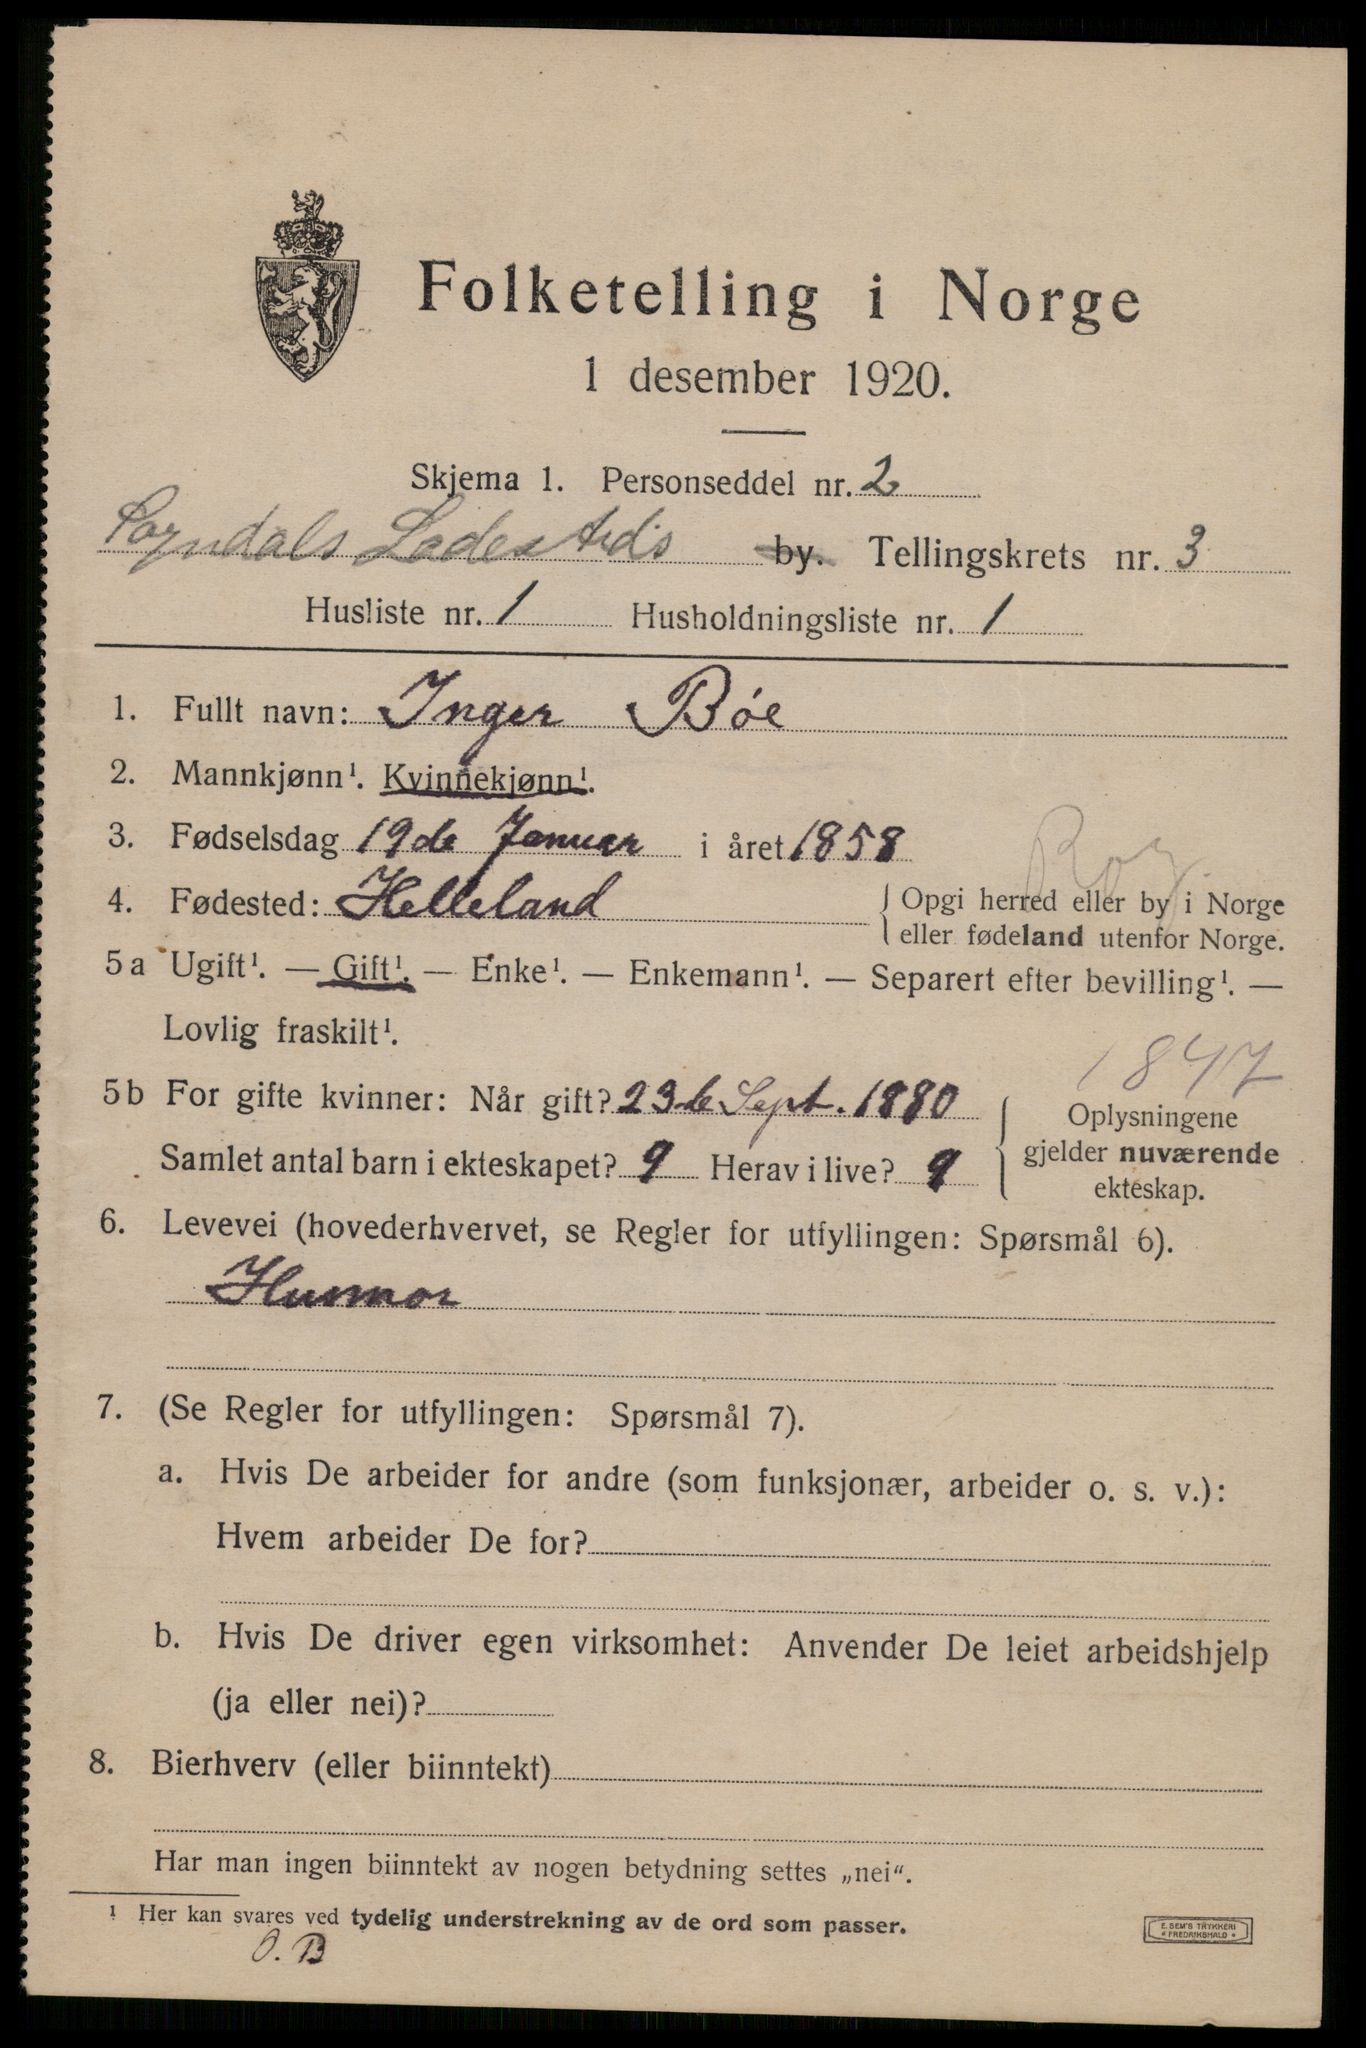 Folketelling i Norge
1 desember 1920.
Skjema 1. Personseddel nr. 2
Sogndals Ladesteds by. Tellingskrets nr. 3
Husliste nr. 1 Husholdningsliste nr. 1
1. Fullt navn: Inger Bóe
2. Mannkjønn¹. Kvinnekjønn¹.
3. Fødselsdag 19de Januar i året 1858
Rog.
4. Fødested: Helleland { Opgi herred eller by i Norge
eller fødeland utenfor Norge.
5a Ugift¹. — Gift¹. — Enke¹. — Enkemann¹. — Separert efter bevilling¹. —
Lovlig fraskilt¹.
1847
5b For gifte kvinner: Når gift? 23de Sept. 1880
Samlet antal barn i ekteskapet? 9 Herav i live? 9
{ Oplysningene
gjelder nuværende
ekteskap.
6. Levevei (hovederhvervet, se Regler for utfyllingen: Spørsmål 6).
Husmor
7. (Se Regler for utfyllingen: Spørsmål 7).
a. Hvis De arbeider for andre (som funksjonær, arbeider o. s. v.):
Hvem arbeider De for?
b. Hvis De driver egen virksomhet: Anvender De leiet arbeidshjelp
(ja eller nei)?
8. Bierhverv (eller biinntekt)
Har man ingen biinntekt av nogen betydning settes „nei“.
¹ Her kan svares ved tydelig understrekning av de ord som passer.
O. B
E. SEM'S TRYKKERI
* FREDRIKSHALD *